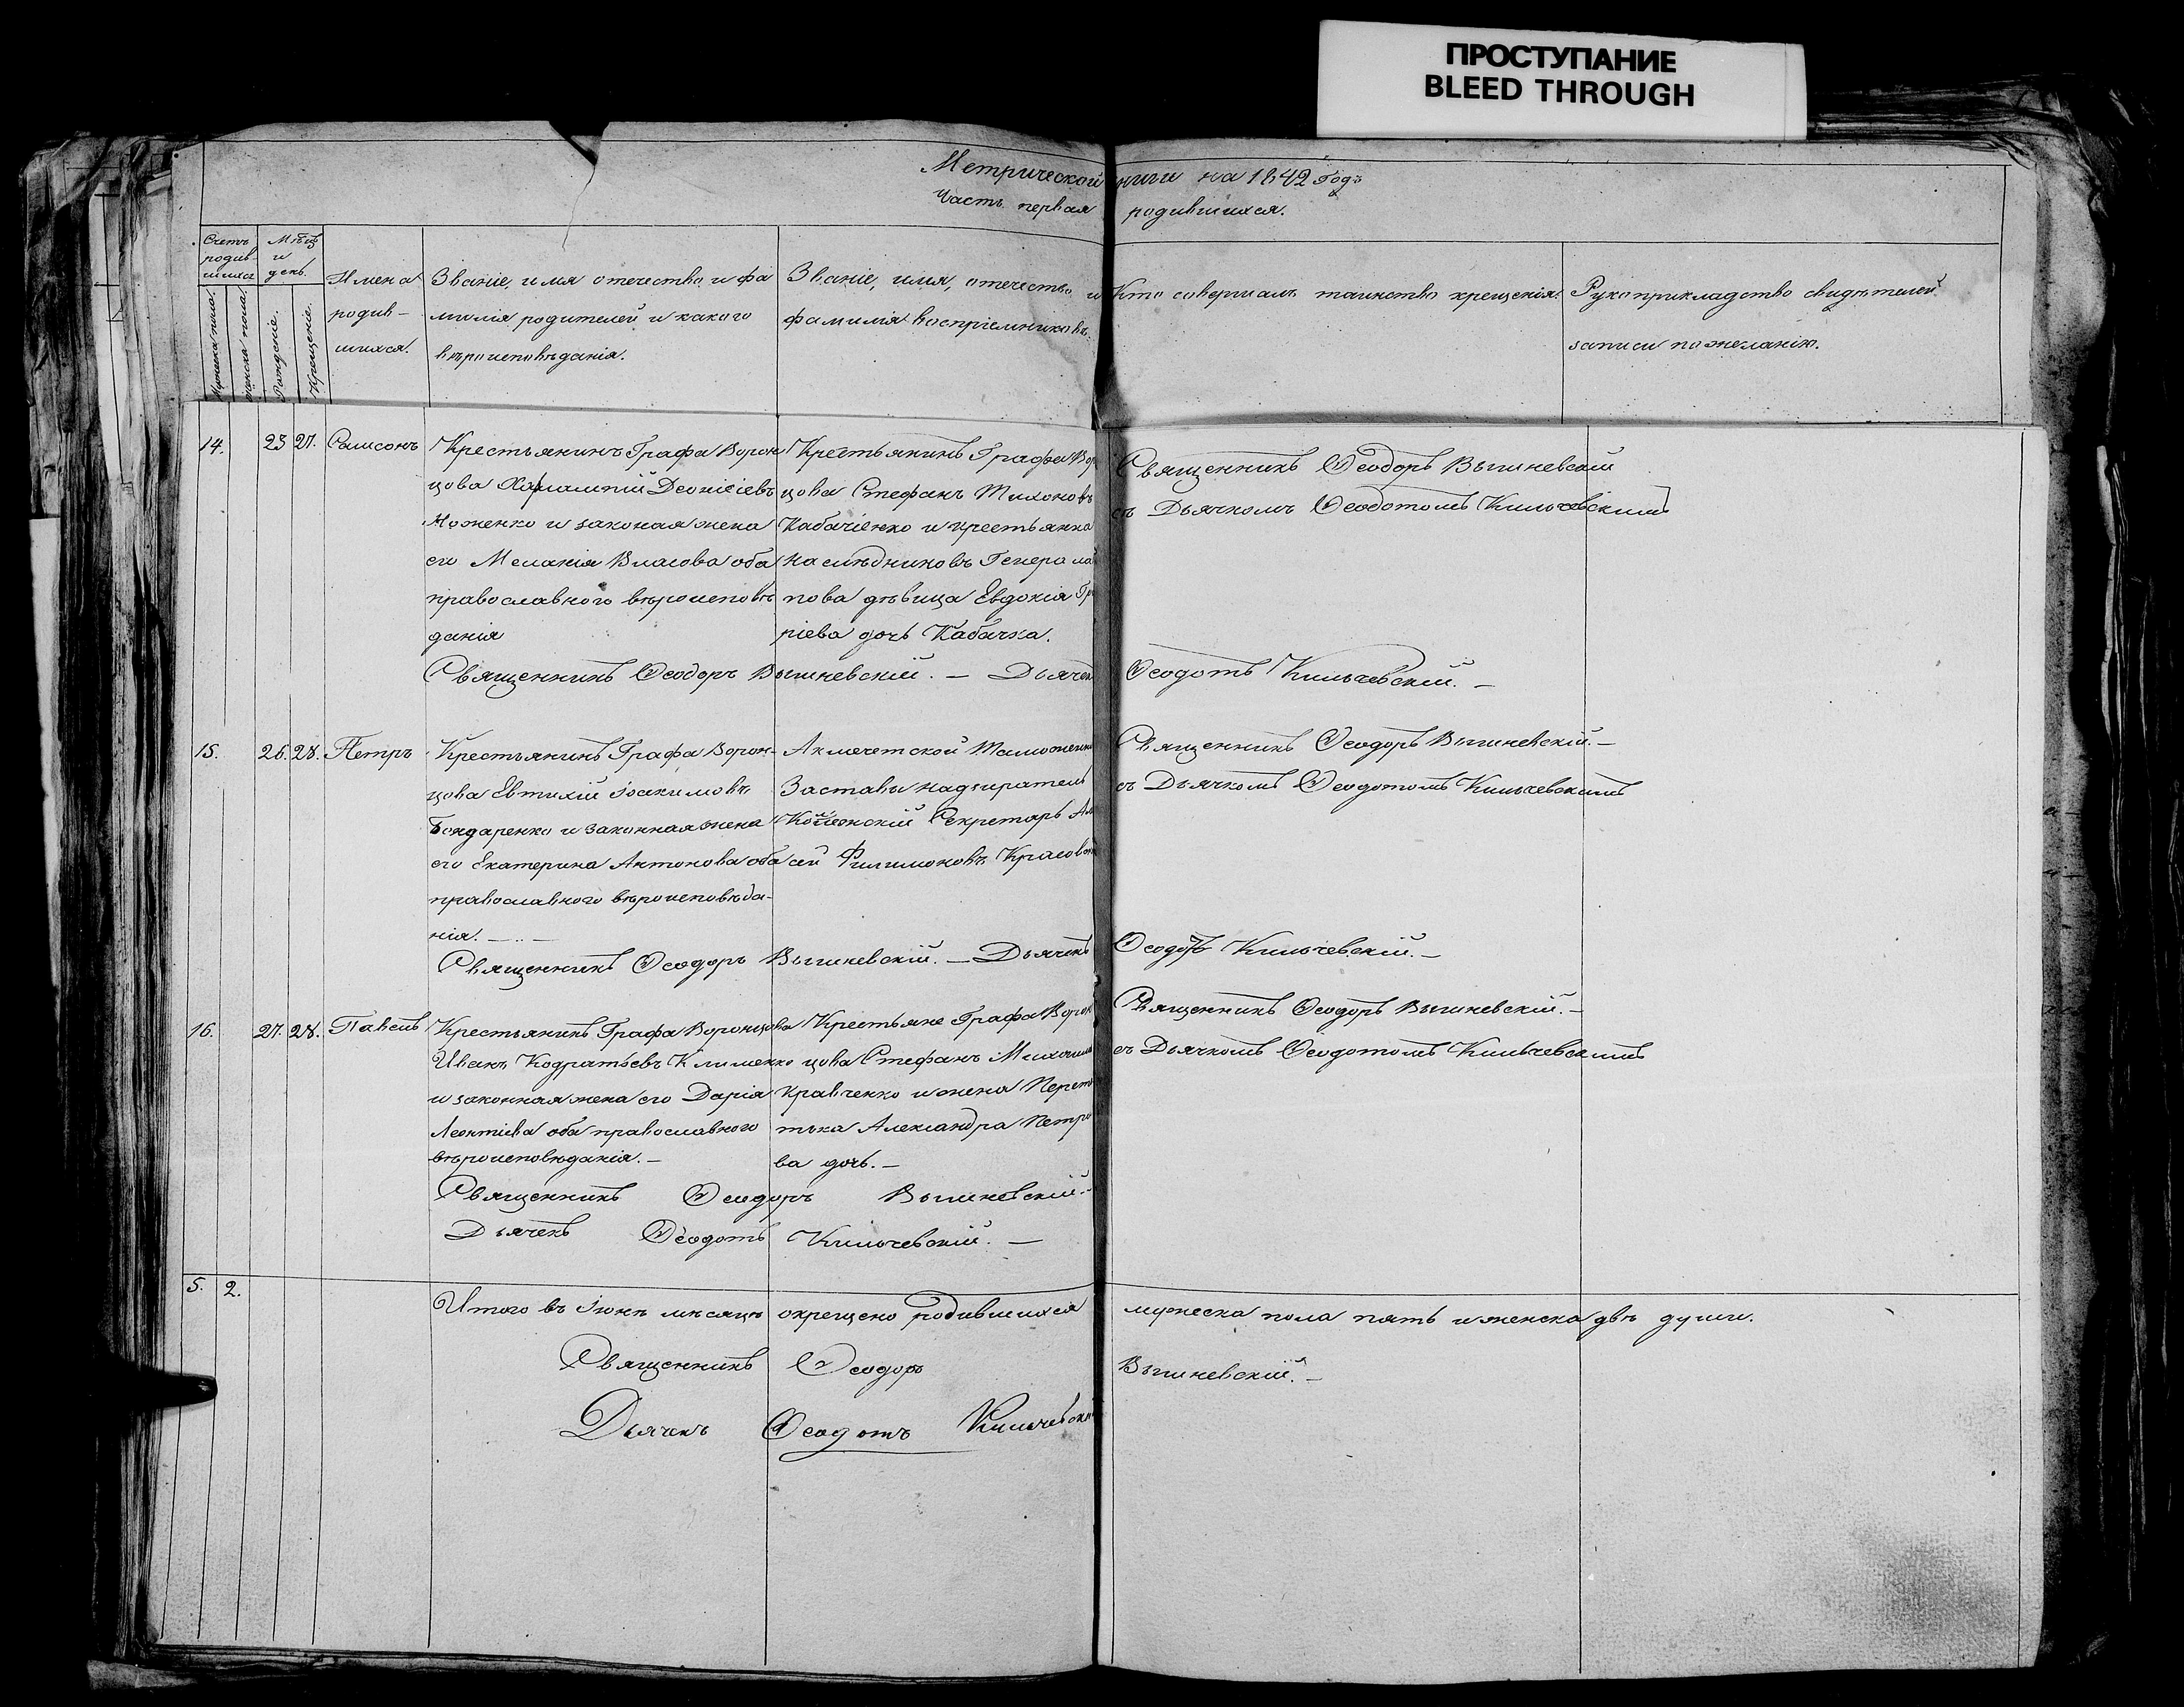 ПРОСТУПАНИЕ
BLEED THROUGH
Метрической книги на 1842 Годъ
Часть первая родившихся.
Счетъ родив-шихся
Мѣсяц и день.
Мужеска пола.
Женска пола.
Рожденіе.
Крещеніе.
Имена родив-шихся.
Званіе, имя отечество и фа
милія родителей и какого
вѣроисповѣданія.
Званіе, имя, отечество и
фамилія воспріемниковъ.
Кто совершалъ таинство крещенія.
Рукоприкладство свидѣтелей
записи по желанію.
14. 23 27. Самсонъ
Крестьянинъ Графа Ворон
цова Харлампій Деонісіевъ
Ноженко и законая жена
его Меланія Власова оба
православного вѣроисповѣ
данія
Крестьянинъ Графа Вор
цова Стефанъ Тихоновъ
Кабаченко и крестьянка
наслѣдниковъ Генерала
пова дѣвица Евдокія Гр
ріева дочь Кабачка.
Священникъ Ѳеодоръ Вышневскій
съ Дьячкомъ Ѳеодотомъ Кильчевскимъ
Священникъ Ѳеодоръ Вышневскій. — Дьячекъ Ѳеодотъ Кильчевскій. —
15. 26. 28. Петръ
Крестьянинъ Графа Ворон-
цова Евтихій Іоакимовъ
Бондаренко и законная жена
его Екатерина Антонова оба
православного вѣроисповѣда-
нія. — .. —
Акмечетской Таможенн
Заставы надзиратель
Секретарь Ал
сей Филимоновъ
Священникъ Ѳеодоръ Вышневскій. —
съ Дьячкомъ Ѳеодотомъ Кильчевскимъ
Священникъ Ѳеодоръ Вышневскій. — Дьячекъ Ѳеодотъ Кильчевскій. —
16. 27. 28. Павелъ
Крестьянинъ Графа Воронцова
Иванъ Кодратьевъ Клименко
и законная жена его Дарія
Леонтіева оба православного
вѣроисповѣданія. —
Крестьяне Графа Ворон
цова Стефанъ
Кравченко и жена Перет
тька Александра Петро
ва дочь. —
Священникъ Ѳеодоръ Вышневскій. —
съ Дьячкомъ Ѳеодотомъ Кильчевскимъ
Священникъ Ѳеодоръ Вышневскій. —
Дьячекъ Ѳеодотъ Кильчевскій. —
5. 2.
Итого въ Іюнѣ мѣсяцѣ окрещено родившихся мужеска пола пять и женска двѣ души.
Священникъ Ѳеодоръ Вышневскій. —
Дьячекъ Ѳеодотъ Кильчевскій